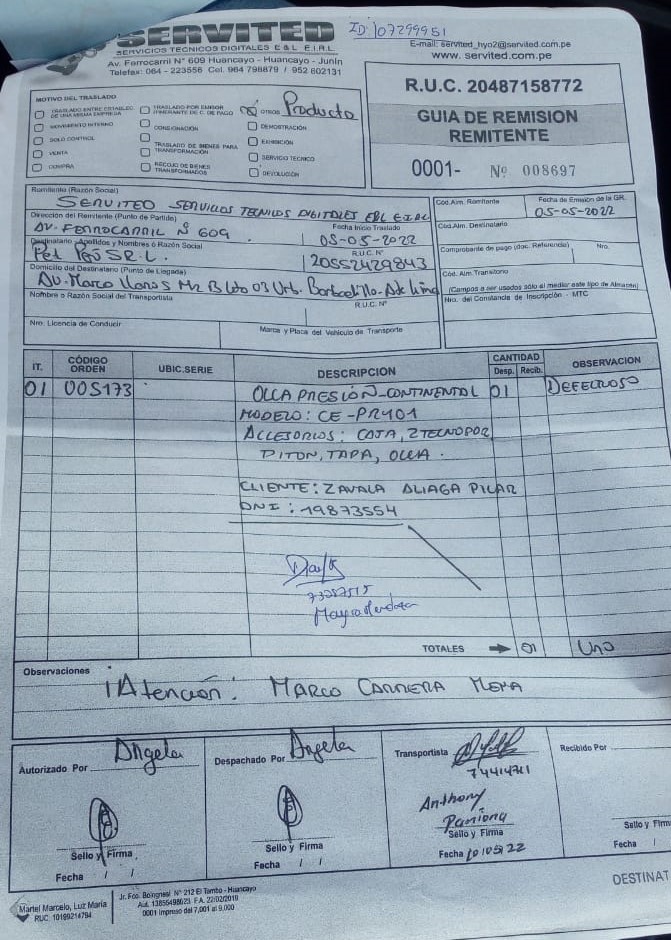 ID: 107299951
SERVITED
SERVICIOS TECNICOS DIGITALES E & L E.I.R.L.
Av. Ferrocarril N° 609 Huancayo - Huancayo - Junín
Telefax: 064 - 223556 Cel. 964 798879 / 952 802131
E-mail: servited_hyo2@servited.com.pe
www.servited.com.pe
R.U.C. 20487158772
GUIA DE REMISION
REMITENTE
0001- Nº 008697
MOTIVO DEL TRASLADO
TRASLADO ENTRE ESTABLEC. DE UNA MISMA EMPRESA
MOVIMIENTO INTERNO
SOLO CONTROL
VENTA
COMPRA
TRASLADO POR EMISOR ITINERANTE DE C. DE PAGO
CONSIGNACIÓN
TRASLADO DE BIENES PARA TRANSFORMACIÓN
RECOJO DE BIENES TRANSFORMADOS
OTROS Producto
DEMOSTRACIÓN
EXHIBICIÓN
SERVICIO TECNICO
DEVOLUCIÓN
Remitente (Razón Social)
SERVITED SERVICIOS TECNICOS DIGITALES E&L EIRL
Dirección del Remitente (Punto de Partida)
AV. FERROCARRIL N° 609
Fecha Inicio Traslado
05-05-2022
Destinatario - Apellidos y Nombres o Razón Social
R.U.C. N°
20552429843
Domicilio del Destinatario (Punto de Llegada)
Av. Marco Llanos Mz B Lote 03 Urb.
Nombre o Razón Social del Transportista
R.U.C. N°
Nro. Licencia de Conducir
Marca y Placa del Vehículo de Transporte
Cod.Alm. Remitente
Fecha de Emisión de la GR.
05-05-2022
Cod.Alm. Destinatario
Comprobante de pago (doc. Referencia) Nro.
Cód. Alm. Transitorio
(Campos a ser usados sólo al mediar este tipo de Almacén)
Nro. del Constancia de Inscripción - MTC
IT. CÓDIGO ORDEN UBIC.SERIE DESCRIPCION CANTIDAD Desp. Recib. OBSERVACION
01 005173 OLLA PRESIÓN-CONTINENTAL 01 DEFECTUOSO
MODELO: CE-PR401
ACCESORIOS: CAJA, 2 TECNOPOR
PITON, TAPA, OLLA.
CLIENTE: ZAVALA ALIAGA PILAR
DNI: 19873554
73057515
Mayra Mendoza
TOTALES 01 Uno
Observaciones
¡Atención: MARCO CARRERA MENA
Autorizado Por Angela
Sello y Firma
Fecha / /
Despachado Por Angela
Sello y Firma
Fecha / /
Transportista
74414711
Anthony
Pariona
Sello y Firma
Fecha 10/05/22
Recibido Por
Sello y Firm
Fecha /
DESTINAT
Martel Marcelo, Luz Maria
RUC: 10199214794
Jr. Fco. Bolognesi N° 212 El Tambo - Huancayo
Aut. 13856498023 F.A. 22/02/2019
0001 Impreso del 7,001 al 9,000